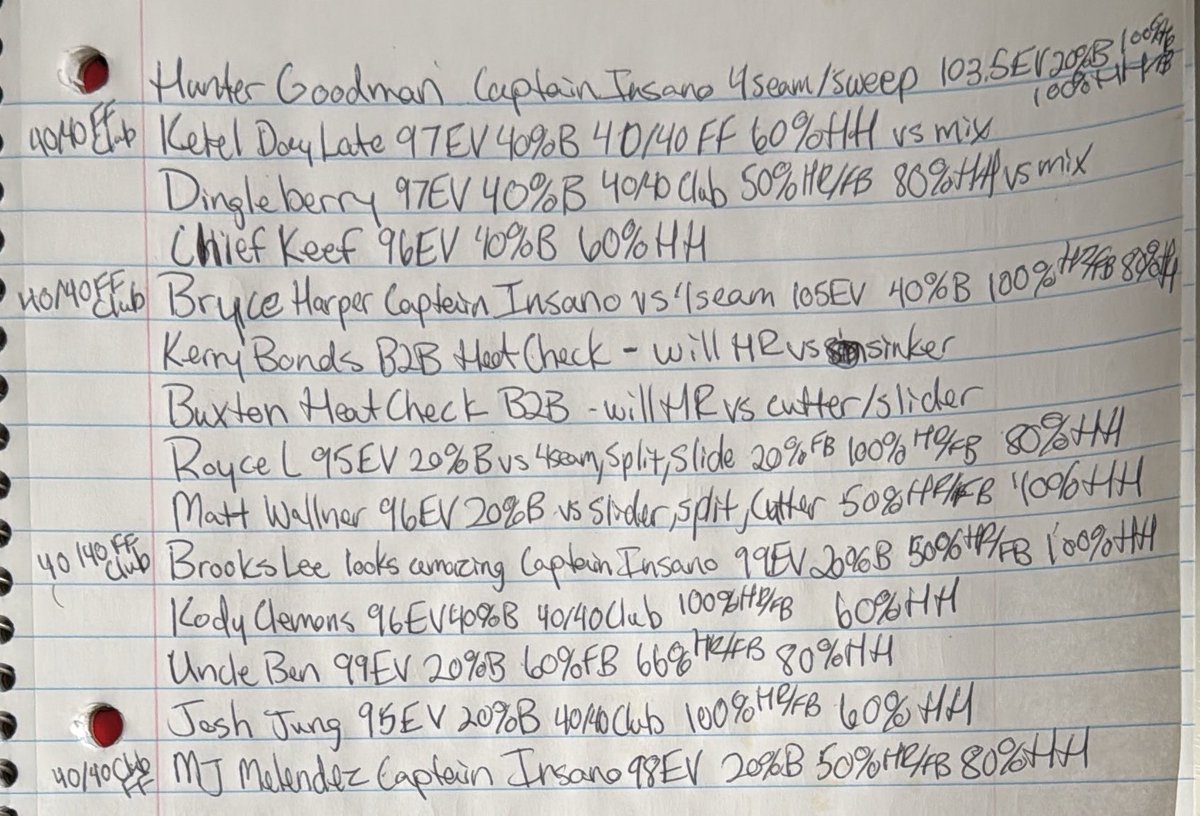 Hunter Goodman Captain Insano 4seam/sweep 103.5EV 20%B 100%HH 100% HR/FB
40/40 FF Club Ketel Day Late 97EV 40%B 40/40 FF 60%HH vs mix
Dingleberry 97EV 40%B 40/40 Club 50%HR/FB 80%HH vs mix
Chief Keef 96EV 40%B 60%HH
40/40 FF Club Bryce Harper Captain Insano vs 4seam 105EV 40%B 100%HR/FB 80%HH
Kerry Bonds B2B Heat Check - will HR vs sinker
Buxton Heat Check B2B - will HR vs cutter/slider
Royce L 95EV 20%B vs 4seam, Split, Slide 20%FB 100%HR/FB 80%HH
Matt Wallner 96EV 20%B vs Slider, split, Cutter 50%HR/FB 100%HH
40/40 FF Club Brooks Lee looks amazing Captain Insano 99EV 20%B 50%HR/FB 100%HH
Kody Clemons 96EV 40%B 40/40 Club 100%HR/FB 60%HH
Uncle Ben 99EV 20%B 60%FB 66%HR/FB 80%HH
Josh Jung 95EV 20%B 40/40 Club 100%HR/FB 60%HH
40/40 Club FF MJ Melendez Captain Insano 98EV 20%B 50%HR/FB 80%HH